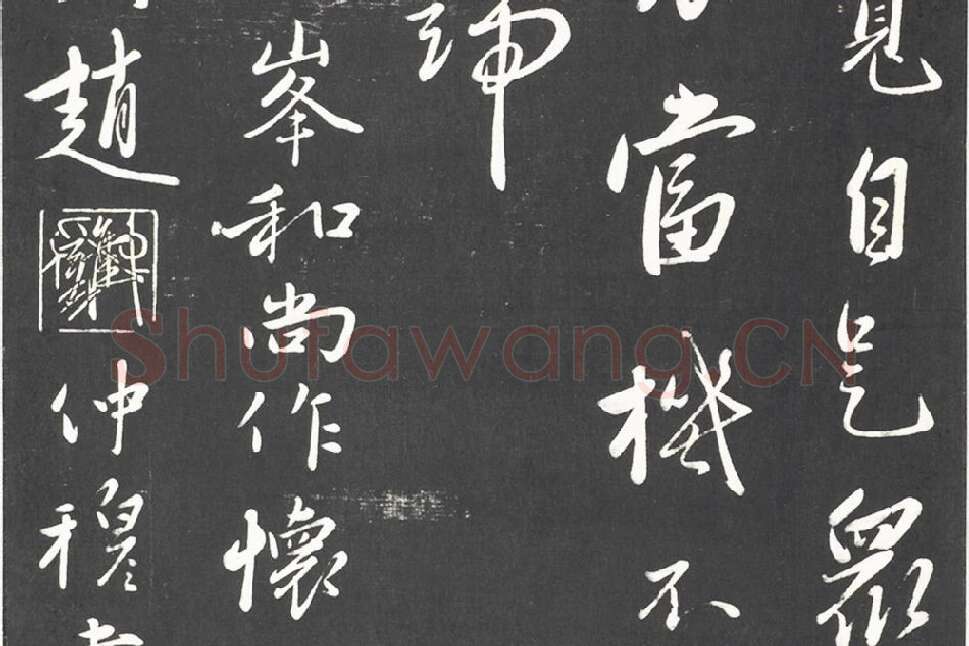 見自是眾
當機不
歸
峯和尚作懷
趙
仲穆書
Shufawang.CN